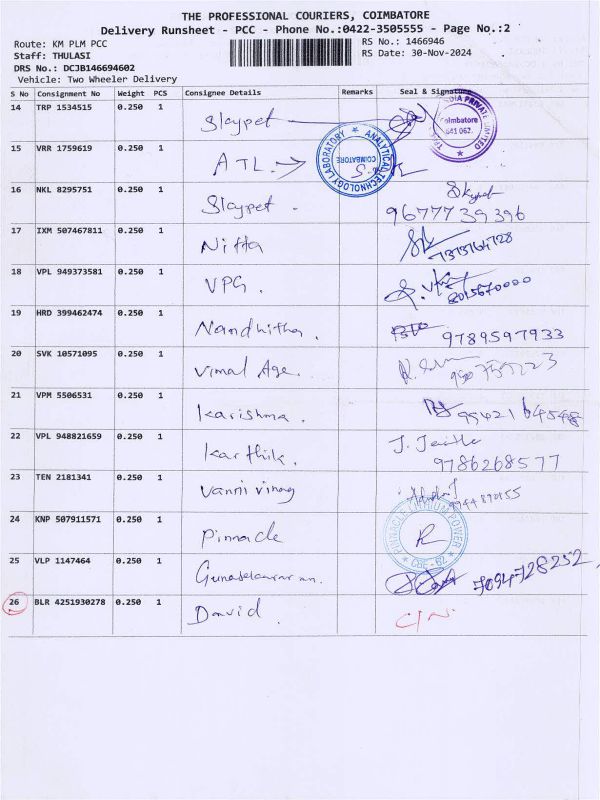 THE PROFESSIONAL COURIERS, COIMBATORE
Delivery Runsheet - PCC - Phone No.:0422-3505555 - Page No.:2
Route: KM PLM PCC
Staff: THULASI
DRS No.: DCJB146694602
Vehicle: Two Wheeler Delivery
RS No.: 1466946
RS Date: 30-Nov-2024
S No Consignment No Weight PCS Consignee Details Remarks Seal & Signature
14 TRP 1534515 0.250 1 Skypet
COIMBATORE 641 062. PRIVATE LIMITED
15 VRR 1759619 0.250 1 ATL
ANALYTICAL TECHNOLOGY LABORATORY COIMBATORE
16 NKL 8295751 0.250 1 Skypet . Skypet
9677739396
17 IXM 507467811 0.250 1 Nitta
7373764728
18 VPL 949373581 0.250 1 VPG .
8015670000
19 HRD 399462474 0.250 1 Nandhitha . 9789597933
20 SVK 10571095 0.250 1 Vimal Age .
21 VPM 5506531 0.250 1 Karishma . 9942164548
22 VPL 948821659 0.250 1 Karthik .
9786268577
23 TEN 2181341 0.250 1 Vanni vinay
24 KNP 507911571 0.250 1 Pinnacle
PINNACLE LITHIUM POWER CBE-62
25 VLP 1147464 0.250 1 7094728252
26 BLR 4251930278 0.250 1 David . C/N